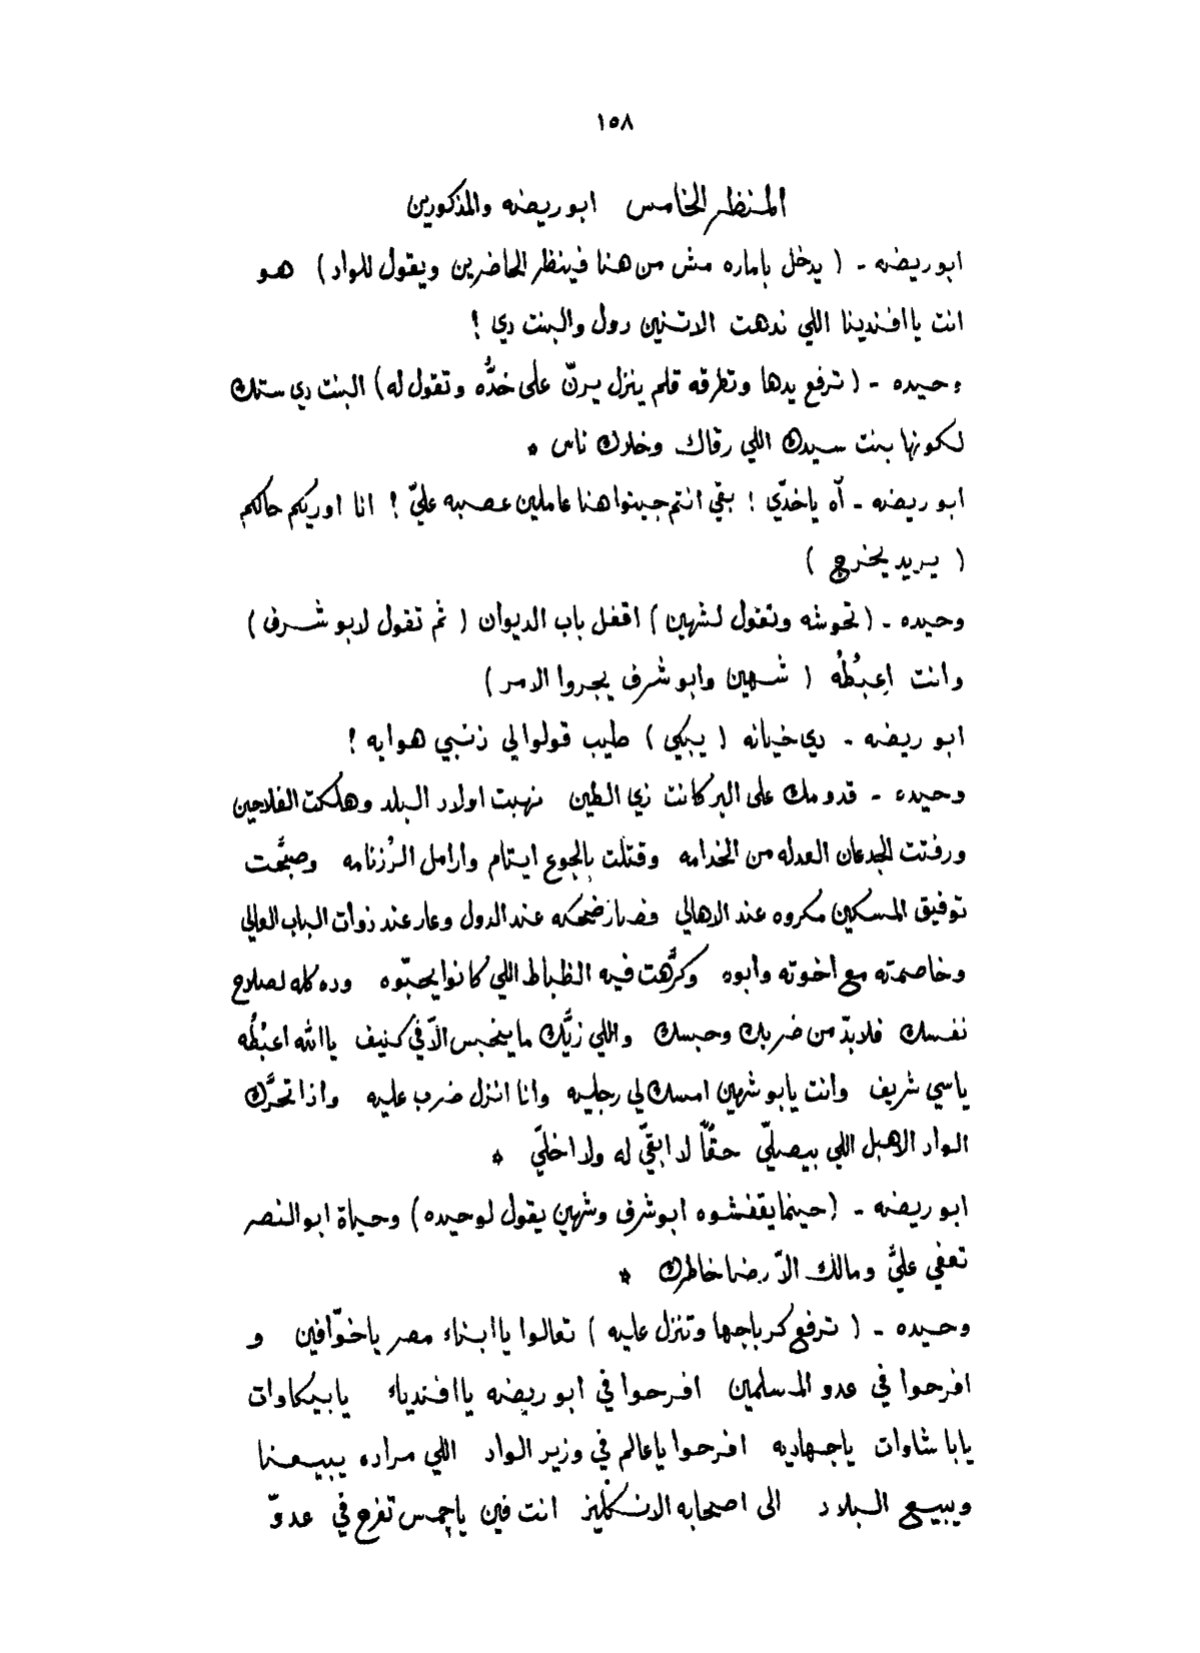 ١٥٨
المنظر الخامس ابو ريضه والمذكورين
ابو ريضه - ( يدخل باماره مش من هنا فينظر الحاضرين ويقول للواد ) هو
انت يا افندينا اللي ندهت الاتنين دول والبنت دي !
وحيده - ( ترفع يدها وتطرقه قلم ينزل يرنّ على خدُّه وتقول له ) البنت دي ستك
لكونها بنت سيدك اللي رقاك وخلاك ناس *
ابو ريضه - آه ياخدّي ! بقي انتم جيتوا هنا عاملين عصبه عليّ ! انا اوريكم حالكم
( يريد يخرج )
وحيده - ( تحوشه وتقول لشهين ) اقفل باب الديوان ( ثم تقول لابو شرف )
وانت اعبُطُه ( شهين وابو شرف يجروا الامر )
ابو ريضه - دي خيانه ( يبكي ) طيب قولوا لي ذنبي هوايه !
وحيده - قدومك على البر كانت زي الطين نهبت اولاد البلد وهلكت الفلاحين
ورفتت الجدعان العدله من الخدامه وقتلت بالجوع ايتام وارامل الرُزنامه وصبَّحت
توفيق المسكين مكروه عند الاهالي وصار ضحكه عند الدول وعار عند ذوات الباب العالي
وخاصمته مع اخوته وابوه وكرَّهت فيه الظباط اللي كانوا يحبّوه وده كله لصلاح
نفسك فلابدّ من ضربك وحبسك واللي زيَّك ما ينحبس الاّ في كنيف يا الله اعبُطُه
ياسي شريف وانت يابو شهين امسك لي رجليه وانا انزل ضرب عليه واذا تحرَّك
الواد الاهبل اللي بيصلّي حقّاً لا ابقيّ له ولا اخليّ *
ابو ريضه - ( حينما يقفشوه ابو شرف وشهين يقول لوحيده ) وحياة ابو النصر
تعفي عليَّ ومالك الاّ رضا خاطرك *
وحيده - ( ترفع كرباجها وتنزل عليه ) تعالوا يا ابناء مصر ياخوّافين و
افرحوا في عدو المسلمين افرحوا في ابو ريضه يا افندياء يابيكاوات
يابا شاوات ياجهاديه افرحوا ياعالم في وزير الواد اللي مراده يبيعنا
ويبيع البلاد الى اصحابه الانكليز انت فين ياچمس تفرح في عدوّ